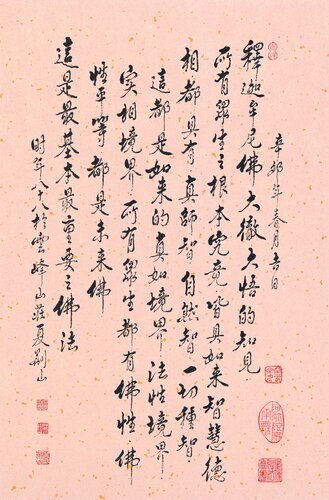 辛卯年春月吉日
釋迦牟尼佛大徹大悟的知見
所有眾生之根本究竟皆具如來智慧德
相都具有真師智自然智一切種智
這都是如來的真如境界法性境界
實相境界所有眾生都有佛性佛
性平等都是未來佛
這是最基本最重要之佛法
時年八十八於雲峰山莊夏荆山